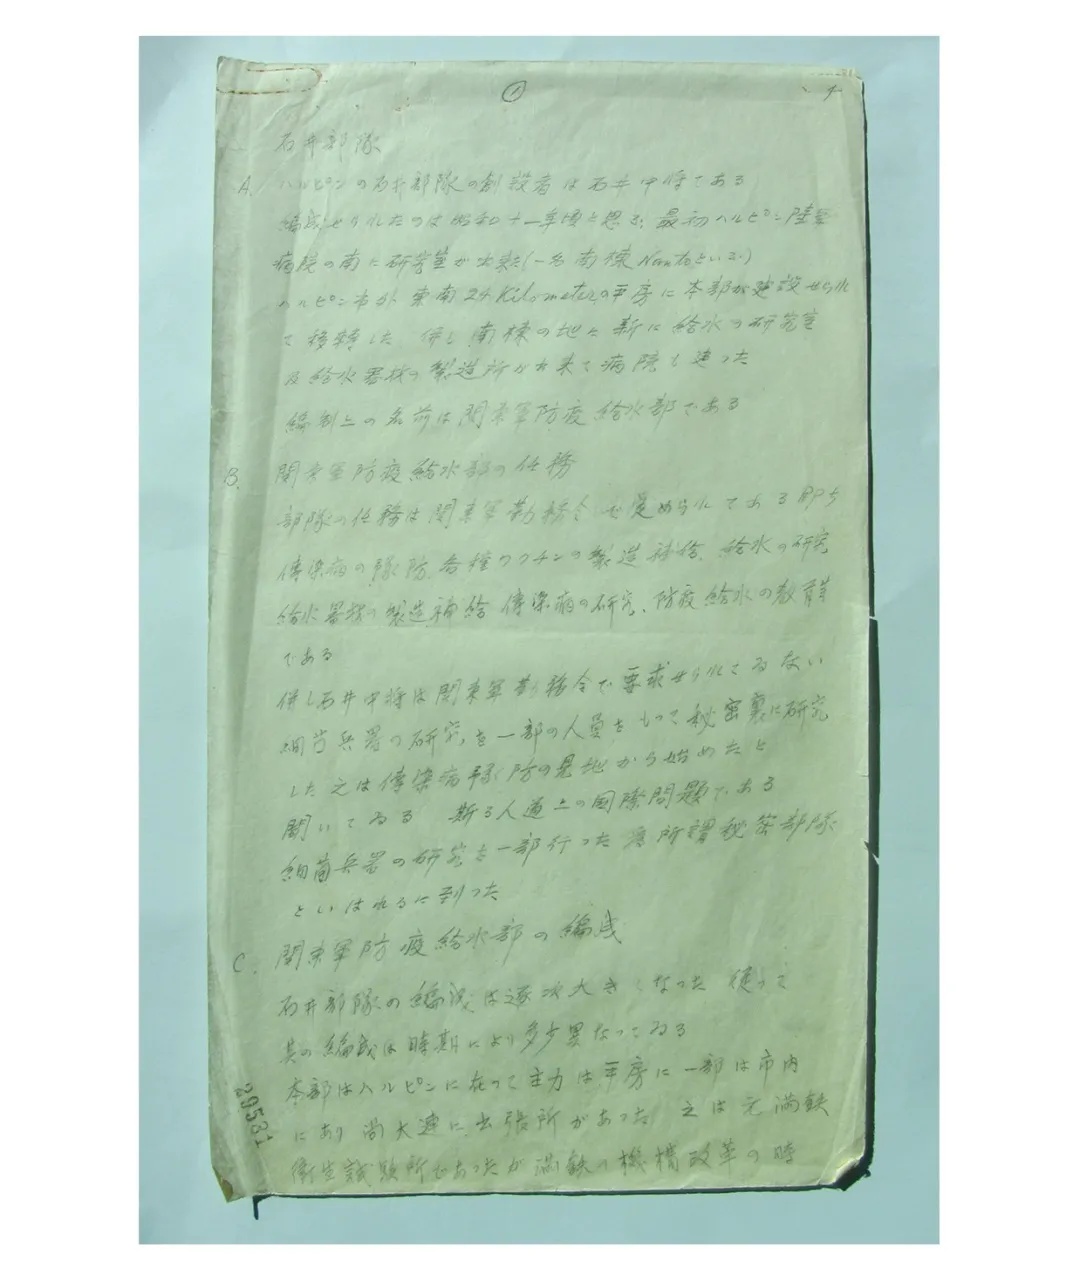 ①
石井部隊
A. ハルピンの石井部隊の創設者は石井中将である
編成せられたのは昭和十一年頃と思ふ 最初ハルピン陸軍
病院の南に研究室が出来た(一名南棟 といふ)
ハルピン市外東南24 Kilometerの平房に本部が建設せられ
て移転した 併し南棟の地に新に給水の研究室
及給水器材の製造所が出来て病院も建った
編制上の名前は関東軍防疫給水部である
B. 関東軍防疫給水部の任務
部隊の任務は関東軍勤務令で定められてある即ち
傳染病の豫防、各種ワクチンの製造補給、給水の研究
給水器材の製造補給 傳染病の研究、防疫給水の教育等
である
併し石井中将は関東軍勤務令で要求せられてゐない
細菌兵器の研究を一部の人員をもって秘密裏に研究
した 之は傳染病豫防の見地から始めたと
聞いてゐる 斯る人道上の國際問題である
細菌兵器の研究を一部行った為所謂秘密部隊
といはれるに到った
C. 関東軍防疫給水部の編成
石井部隊の編成は逐次大きくなった 従って
其の編成は時期により多少異なってゐる
本部はハルピンに在って主力は平房に一部は市内
にあり 尚大連に出張所があった 之は元満鉄
衛生試験所であったが満鉄の機構改革の時
29531